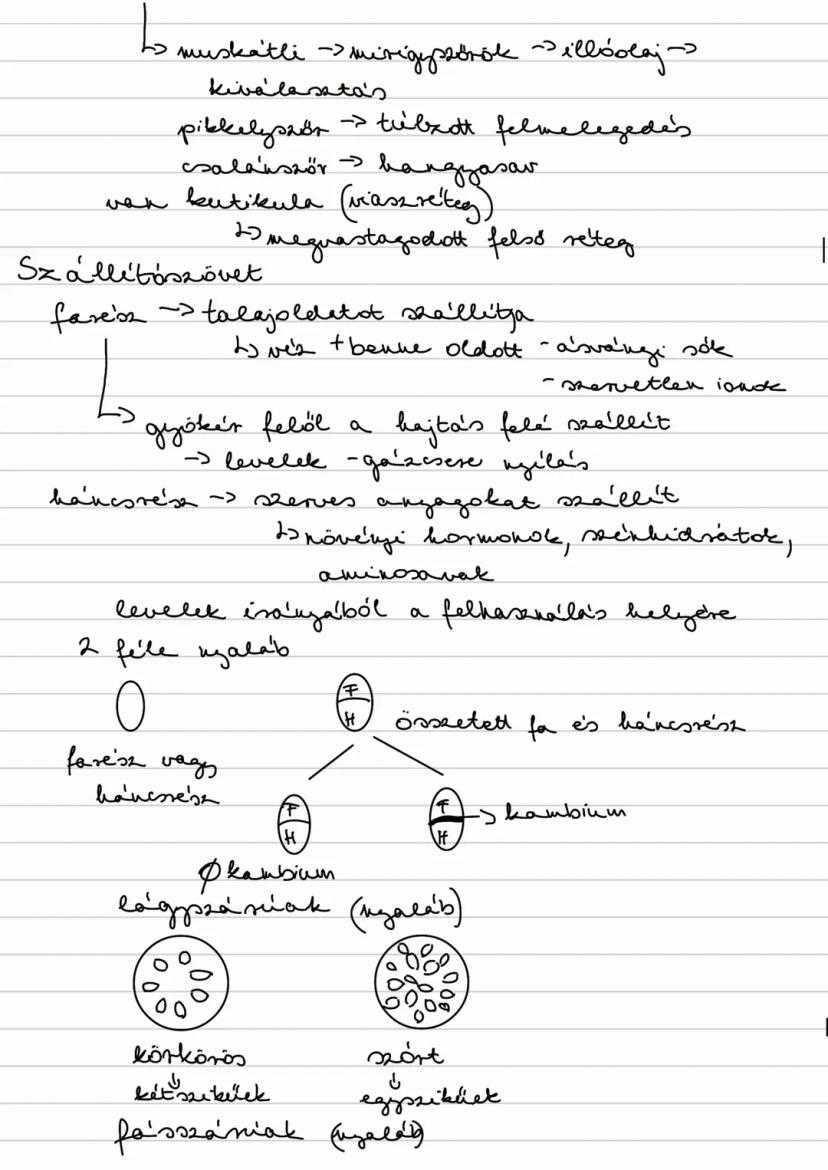 ↳ muskátli → mirigyszőrök → illóolaj →
kiválasztás
pikkelyszőr → túlzott felmelegedés
csalánszőr → hangyasav
van kutikula (viaszréteg)
↳ megvastagodott felső réteg
Szállítószövet
farész → talajoldatot szállítja
↳ víz + benne oldott - ásványi sók
- szervetlen ionok
↳ gyökér felől a hajtás felé szállít
→ levelek - gázcsere nyílás
háncsrész → szerves anyagokat szállít
↳ növényi hormonok, szénhidrátok,
aminosavak
levelek irányából a felhasználás helyére
2 féle nyaláb
F
H
összetett fa és háncsrész
farész vagy
háncsrész
F
H
F
H
→ kambium
∅ kambium
lágyszárúak (nyaláb)
körkörös szórt
↓ ↓
kétszikűek egyszikűek
fásszárúak (nyaláb)